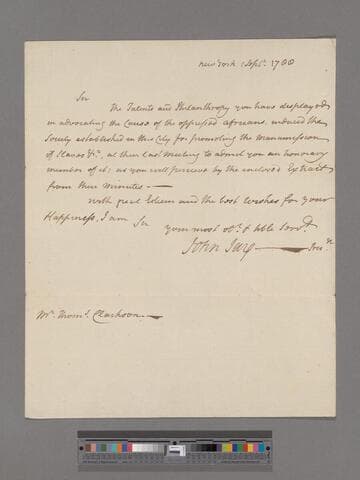 New York 1 Sept. 1788
Sir
The Talents and Philanthropy you have displayed
in advocating the Cause of the oppressed africans, induced the
Society established in this City for promoting the manumission
of Slaves &c., at their last Meeting to admit you an honorary
member of it; as you will perceive by the enclosed Extract
from their Minutes.—
with great Esteem and the best wishes for your
Happiness, I am Sir
your most obt. & hble Servt.
John Jay —
Mr. Thoms. Clarkson.—